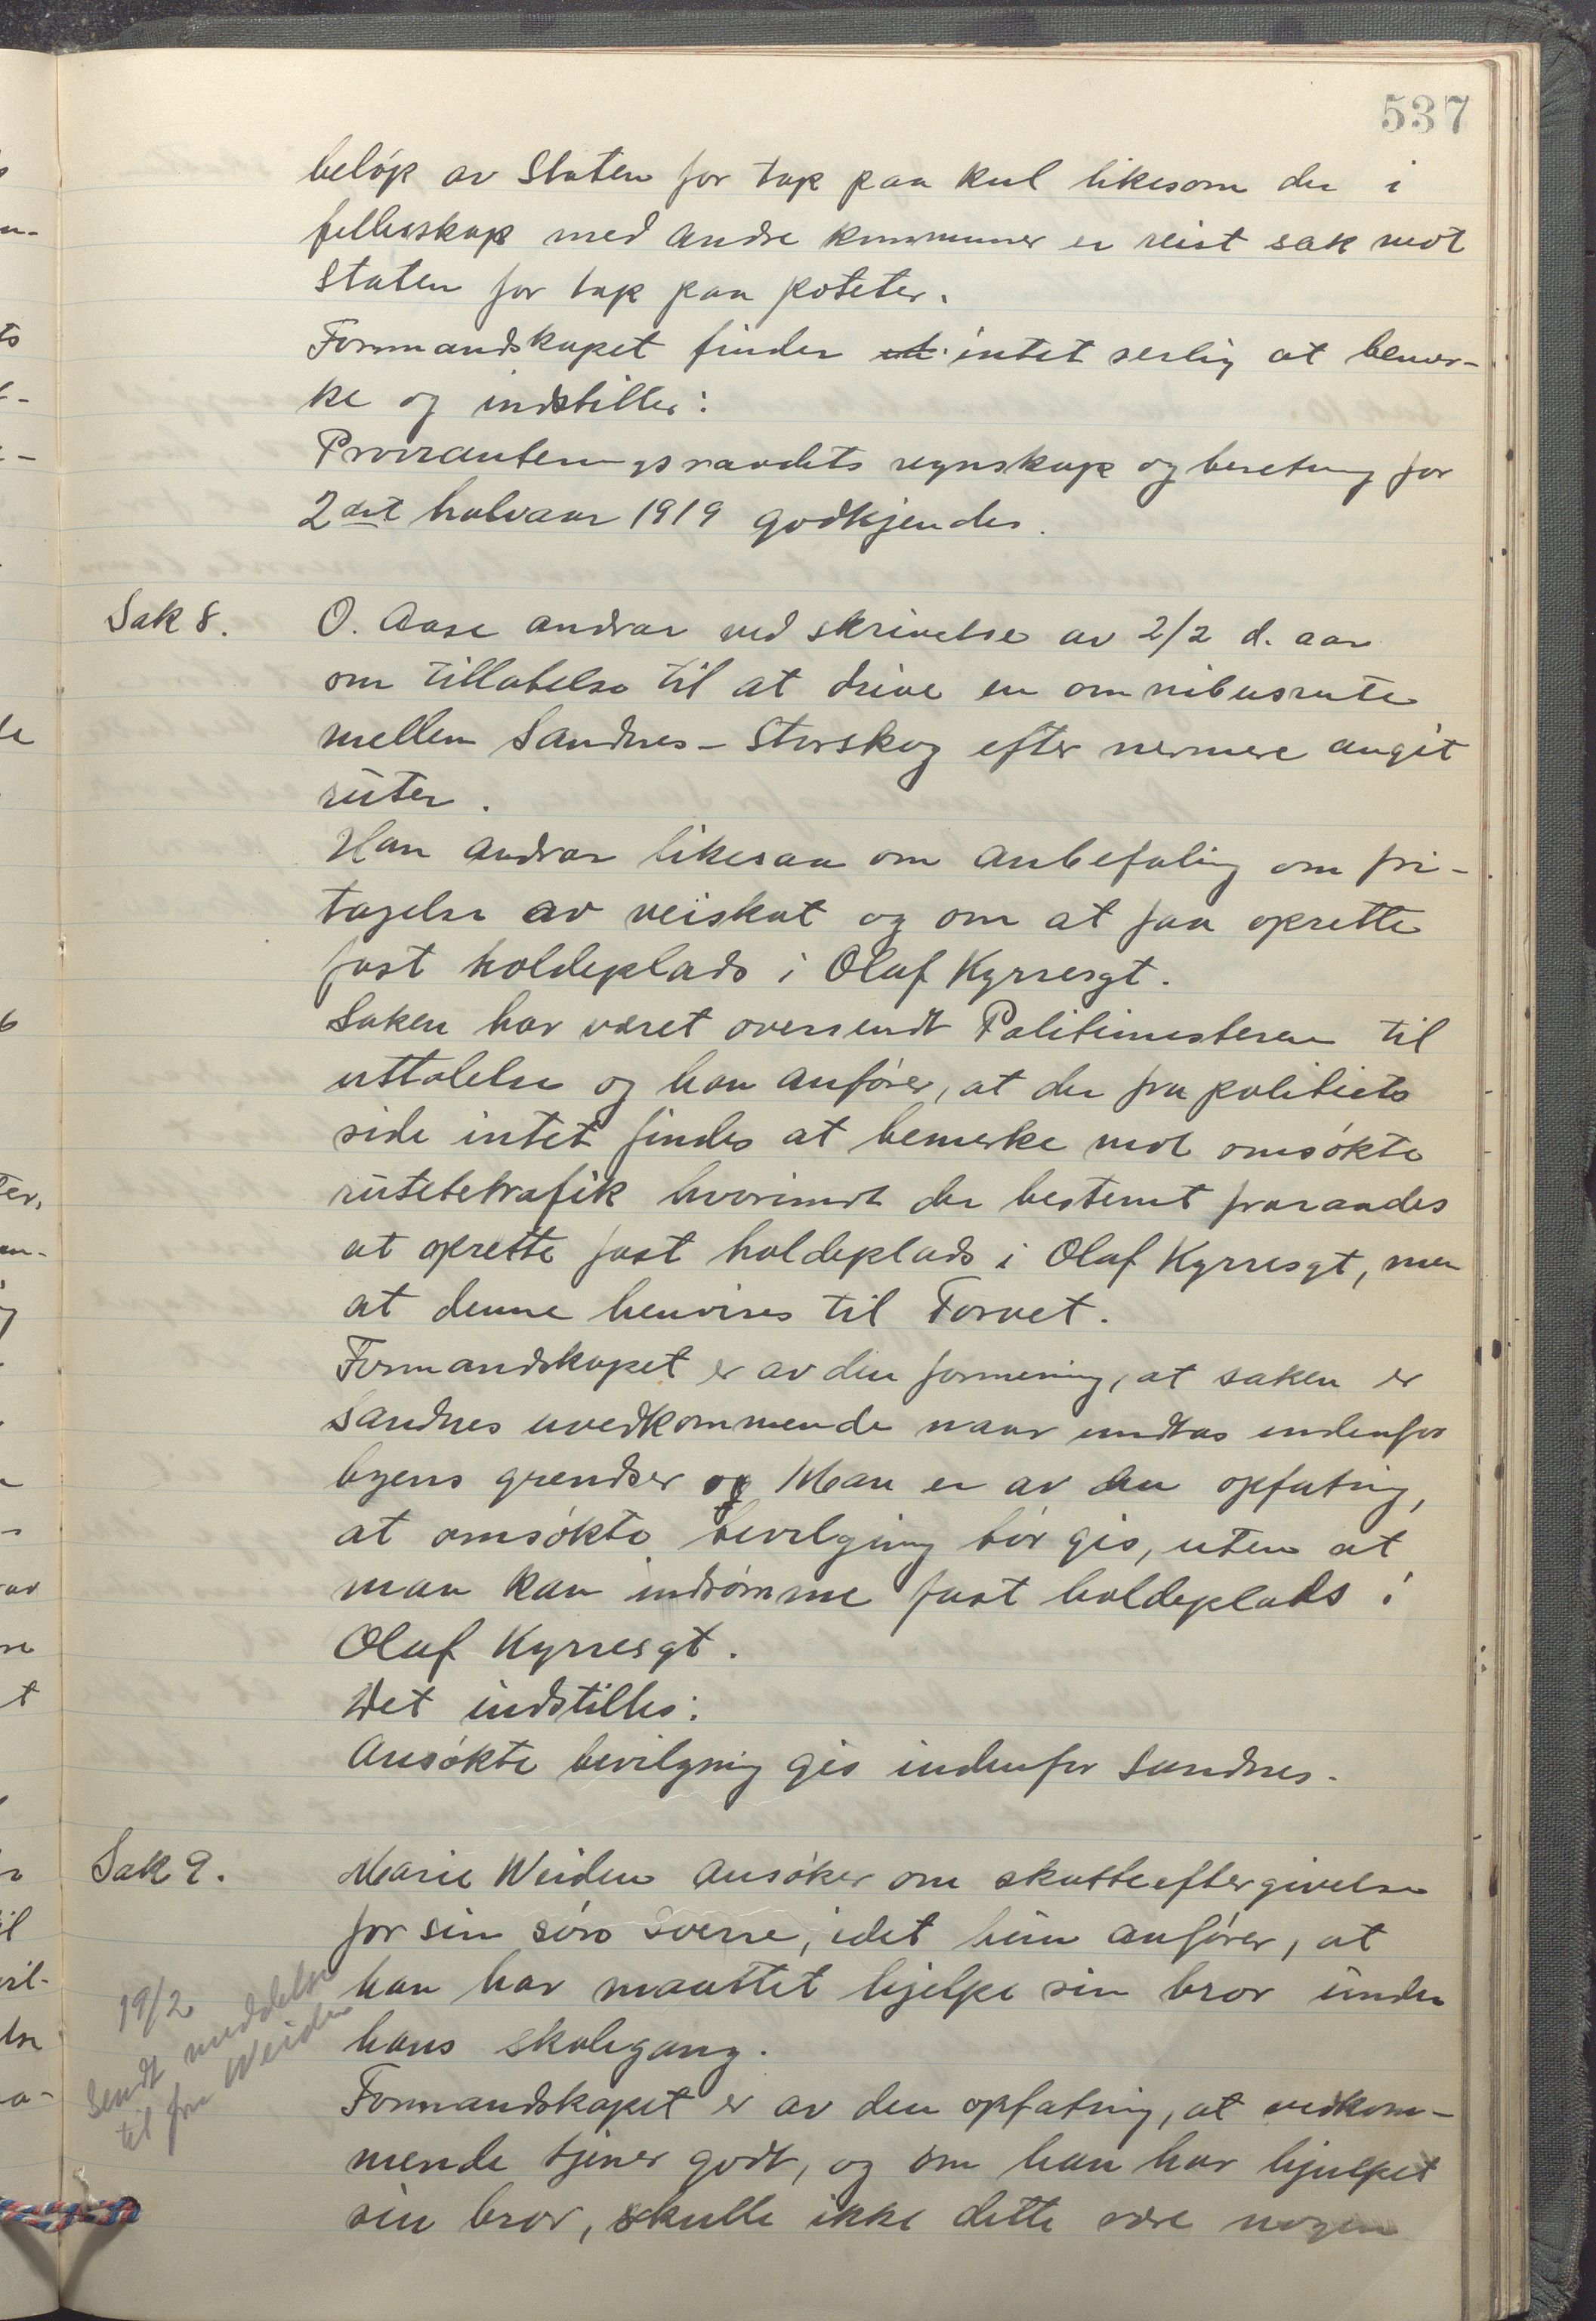 537
beløp av Staten for tap paa kul likesom der i
fellesskap med andre kommuner er reist sak mot
Staten for tap paa poteter.
Formandskapet finder intet serlig at bemer-
ke og indstiller:
Provianteringsraadets regnskap og beretning for
2det halvaar 1919 godkjendes.
Sak 8.
O. Aase andrar ved skrivelse av 2/2 d. aar
om tillatelse til at drive en omnibusrute
mellem Sandnes - Storskog efter nermere angit
ruter.
Han andrar likesaa om anbefaling om fri-
tagelse av veiskat og om at faa oprette
fast holdeplads i Olaf Kyrresgt.
Saken har været oversendt Politimesteren til
uttalelse og han anfører, at der fra politiets
side intet findes at bemerke mot omsøkte
rutebetrafik hvorimot der bestemt fraraades
at oprette fast holdeplads i Olaf Kyrresgt, men
at denne henvises til Torvet.
Formandskapet er av den formening, at saken er
Sandnes uvedkommende naar undtas indenfor
byens grendser og Man er av den opfatning,
at omsøkte bevilgning bør gis, uten at
man kan indrømme fast holdeplads i
Olaf Kyrresgt.
Det indstilles:
Ansøkte bevilgning gis indenfor Sandnes.
Sak 9.
Marie Weiden ansøker om skatteeftergivelse
for sin søn Sverre, idet hun anfører, at
han har maattet hjelpe sin bror under
hans skolegang.
Formandskapet er av den opfatning, at vedkom-
mende tjener godt, og om han har hjulpet
sin bror, skulle ikke dette være nogen
19/2
Sendt meddelse
til fru Weiden